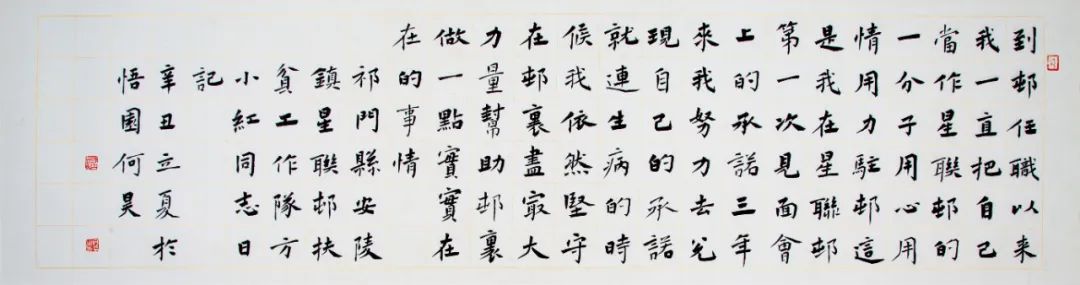 到邨任職以来
我一直把自己
當作星聯邨的
一分子用心用
情用力駐邨這
是我在星聯邨
第一次見面會
上的承諾三年
來我努力去兑
現自己的承諾
就連生病的時
候我依然堅守
在邨裏盡㝡大
力量幫助邨裏
做一點實實在
在的事情
祁門縣安陵
鎮星聯邨扶
貧工作隊方
小紅同志日
記
辛丑立夏於
悟園何昊